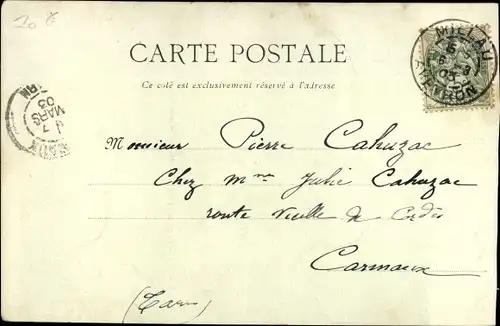 20 €
CARTE POSTALE
Ce côté est exclusivement réservé à l'adresse
MILLAU
6
03
AVEYRON
7
MARS
03
TARN
Monsieur Pierre Cahuzac
Chez Mme Julie Cahuzac
route vieille de Cordes
Carmaux
(Tarn)